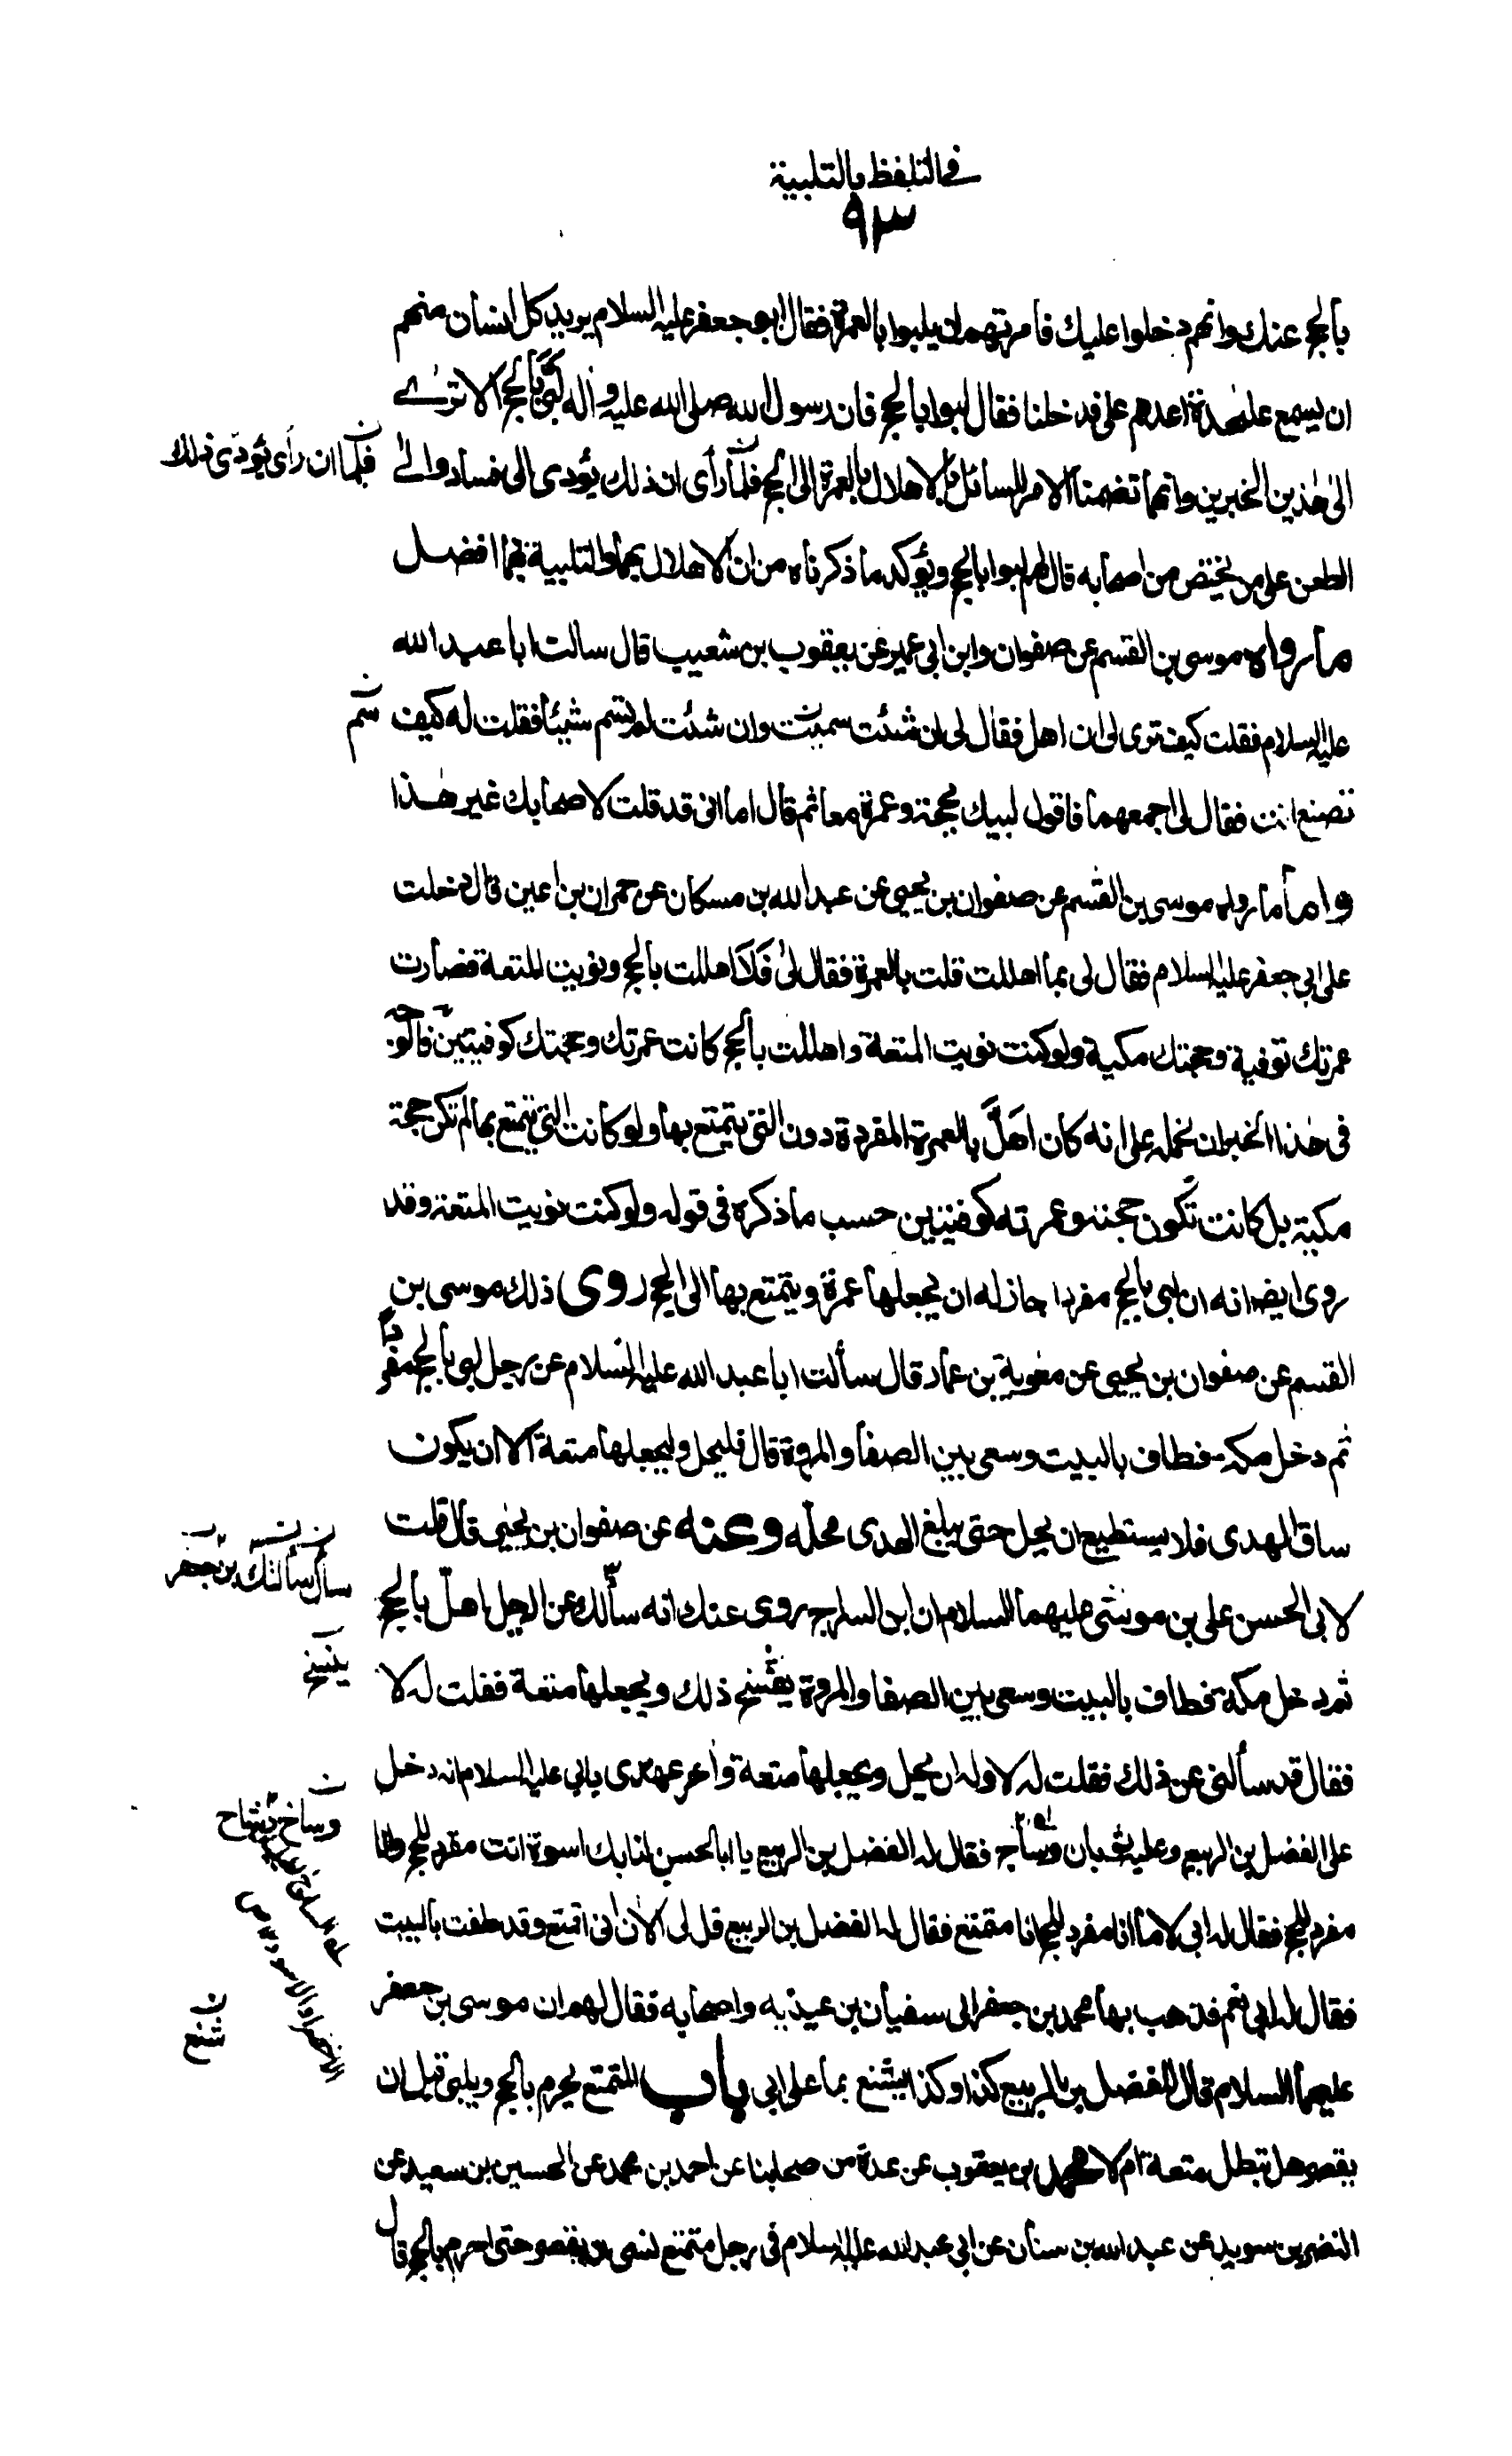 في التلفظ بالتلبية
٩٣
بالحج عنك وانهم دخلوا عليك فامرتهم ان يلبوا بالعمرة فقال ابو جعفر عليه السلام يريد كل انسان منهم
ان يسمع على حدة اعدهم علي فدخلنا فقال لبوا بالحج فان رسول الله صلى الله عليه وآله لبّى بالحج الا ترى
الى هٰذين الخبرين وانهما تضمنا الامر للسائل بالاهلال بالعمرة الى الحج فلمّا رأى ان ذلك يؤدى الى فساد والى
فلما ان رأى يؤدّى ذلك
الطعن على من يختص من اصحابه قال لهم لبوا بالحج ويؤكد ما ذكرناه من ان الاهلال بهما والتلبية بهما افضل
ما رواه موسى بن القسم عن صفوان وابن ابي عمير عن يعقوب بن شعيب قال سالت ابا عبد الله
عليه السلام فقلت كيف ترى لى ان اهل فقال لى ان شئت سميت وان شئت لم تسم شيئا فقلت له كيف
تصنع انت فقال لى اجمعهما فاقول لبيك بحجة وعمرة معا ثم قال اما انى قد قلت لاصحابك غير هٰذا
واما ما رواه موسى بن القسم عن صفوان بن يحيى عن عبد الله بن مسكان عن حمران بن اعين قال دخلت
على ابي جعفر عليه السلام فقال لى بما اهللت قلت بالعمرة فقال لى افلا اهللت بالحج ونويت المتعة فصارت
عمرتك كوفية وحجتك مكية ولو كنت نويت المتعة واهللت بالحج كانت عمرتك وحجتك كوفيتين فالوجه
فى هٰذا الخبر ان نحمله على انه كان اهلّ بالعمرة المفردة دون التى يتمتع بها ولو كانت التى يتمتع بها لم تكن حجة
مكية بل كانت تكون حجته وعمرته كوفيتين حسب ما ذكره فى قوله ولو كنت نويت المتعة وقد
روى ايضا انه ان لبى بالحج مفردا جاز له ان يجعلها عمرة ويتمتع بها الى الحج روى ذلك موسى بن
القسم عن صفوان بن يحيى عن معوية بن عمار قال سألت ابا عبد الله عليه السلام عن رجل لبى بالحج مفردا
ثم دخل مكة فطاف بالبيت وسعى بين الصفا والمروة قال فليحل وليجعلها متعة الا ان يكون
ساق الهدى فلا يستطيع ان يحل حتى يبلغ الهدى محله وعنه عن صفوان بن يحيى قال قلت
لابى الحسن على بن موسى عليهما السلام ان ابن السراج روى عنك انه سألك عن الرجل اهلّ بالحج
ثم دخل مكة فطاف بالبيت وسعى بين الصفا والمروة يفسخ ذلك ويجعلها متعة فقلت له لا
فقال قد سألنى عن ذلك فقلت له لا وله ان يحل ويجعلها متعة وآخر عهدى بابي عليه السلام انه دخل
على الفضل بن الربيع وعليه ثوبان وساج فقال له الفضل بن الربيع يا ابا الحسن لنا بك اسوة انت مفرد للحج وانا
مفرد للحج فقال له ابى لا ما انا مفرد للحج انا متمتع فقال له الفضل بن الربيع قل لى الآن انى اتمتع وقد طفت بالبيت
فقال له ابى نعم فذهب بها محمد بن جعفر الى سفيان بن عيينة واصحابه فقال لهم ان موسى بن جعفر
شنع
عليهما السلام قال للفضل بن الربيع كذا وكذا يشنع بها على ابى باب المتمتع يحرم بالحج ويلبى قبل ان
يقصر هل تبطل متعة ام لا محمد بن يعقوب عن عدة من اصحابنا عن احمد بن محمد عن الحسين بن سعيد عن
النضر بن سويد عن عبد الله بن سنان عن ابي عبد الله عليه السلام فى رجل متمتع نسى ان يقصر حتى احرم بالحج قال